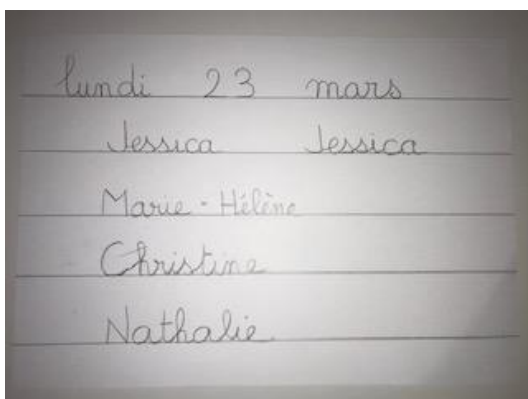 lundi 23 mars
Jessica Jessica
Marie-Hélène
Christine
Nathalie